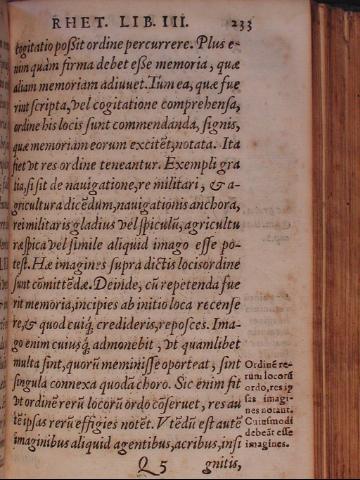 RHET. LIB. III. 233
cogitatio poßit ordine percurrere. Plus e-
nim quàm firma debet esse memoria, quæ
aliam memoriam adiuuet. Tum ea, quæ fue
rint scripta, vel cogitatione comprehensa,
ordine his locis sunt commendanda, signis,
quæ memoriam eorum excitēt, notata. Ita
fiet vt res ordine teneantur. Exempli gra
tia, si sit de nauigatione, re militari, & a-
gricultura dicēdum, nauigationis anchora,
rei militaris gladius vel spiculū, agricultu
ræ spica vel simile aliquid imago esse po-
test. Hæ imagines supra dictis locis ordine
sunt cōmittēdæ. Deinde, cū repetenda fue
rit memoria, incipies ab initio loca recense
re, & quod cuiq́; credideris, reposces. Ima-
go enim cuiusq́; admonebit, vt quamlibet
multa sint, quorū meminisse oporteat, sint
singula connexa quodā choro. Sic enim fit
vt ordinē rerū locorū ordo cōseruet, res au
tē ipsas rerū effigies notēt. Vtēdū est autē
imaginibus aliquid agentibus, acribus, insi
Q 5 gnitis,
Ordinē re-
rum locorū
ordo, res ip
sas imagi-
nes notant.
Cuiusmodi
debeāt esse
imagines.